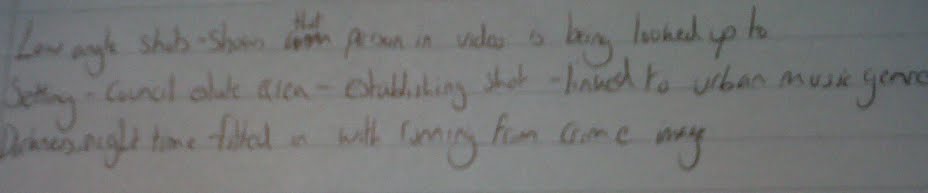 Low angle shots - shows that person in video is being looked up to
Setting - Council estate area - establishing shot - linked to urban music genre
Darkness, night time - fitted in with running from crime